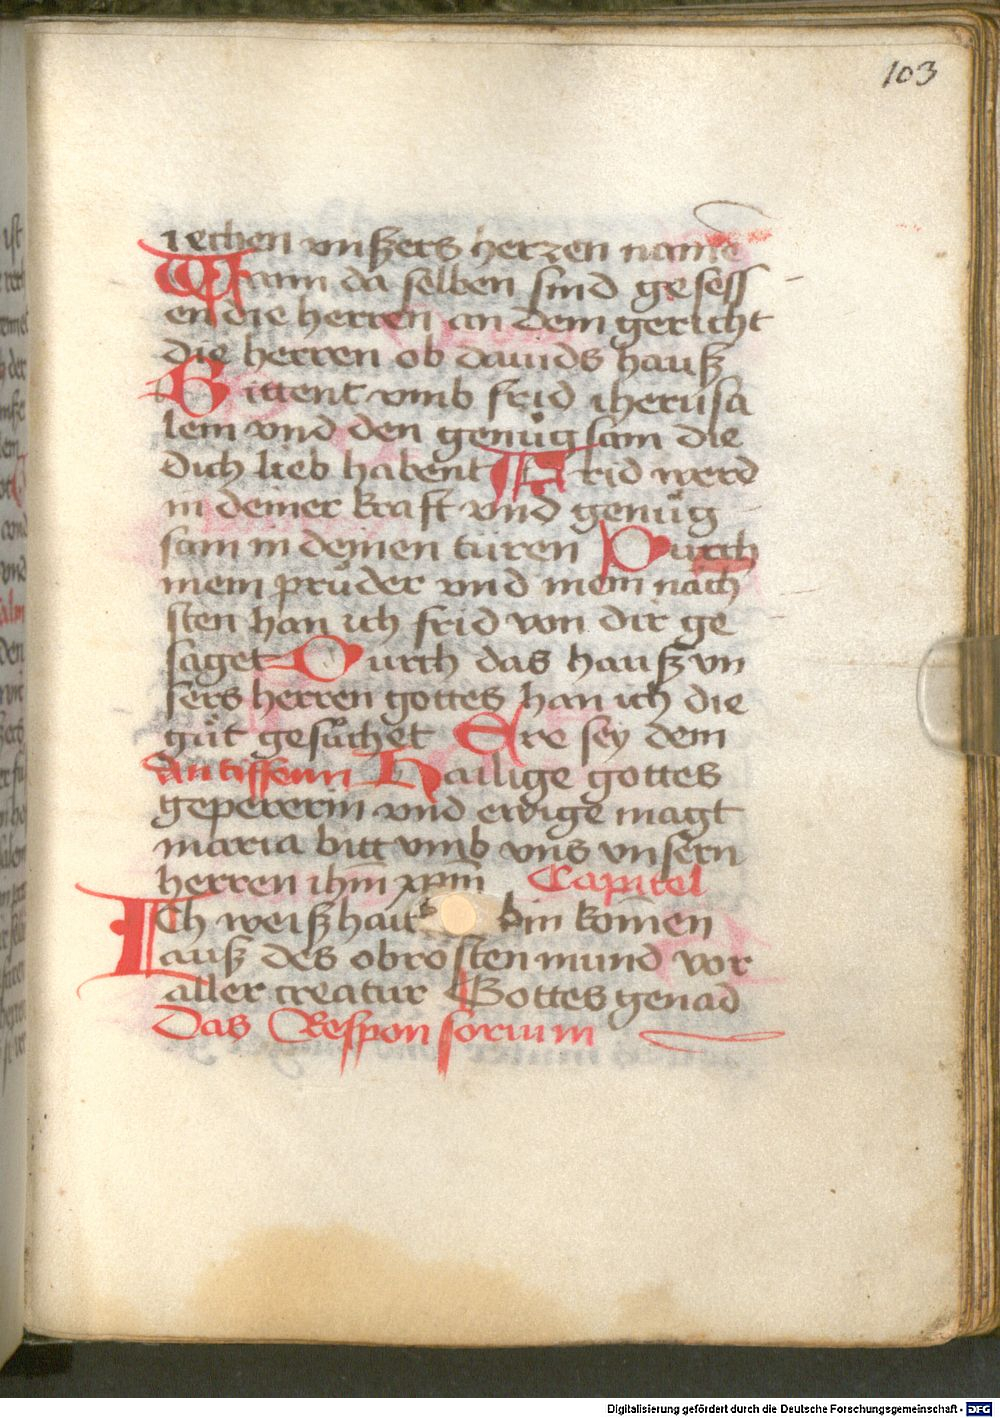 103
iechen vnßers herzen name
Wann da selben sind gesess
en die herren an dem gericht
die herren ob dauids hauß
Bittent vmb frid iherusa
lem vnd den genůgsam die
dich lieb habent Frid werd
in deiner kraft vnd genůg
sam in deinen türen Durch
mein prüder vnd mein nach
sten han ich frid von dir ge
saget Durch das hauß vn
sers herren gottes han ich die
gůt gesůchet Ere sey dem
Antiffenn Hailige gottes
gepererin vnd ewige magt
maria bitt vmb vns vnsern
herren ihm̄ xp̄m Capitel
Ich weißhait bin kom̄en
auß des obrosten mund vor
aller creatur Gottes genad
Das Responsorium
Digitalisierung gefördert durch die Deutsche Forschungsgemeinschaft - DFG